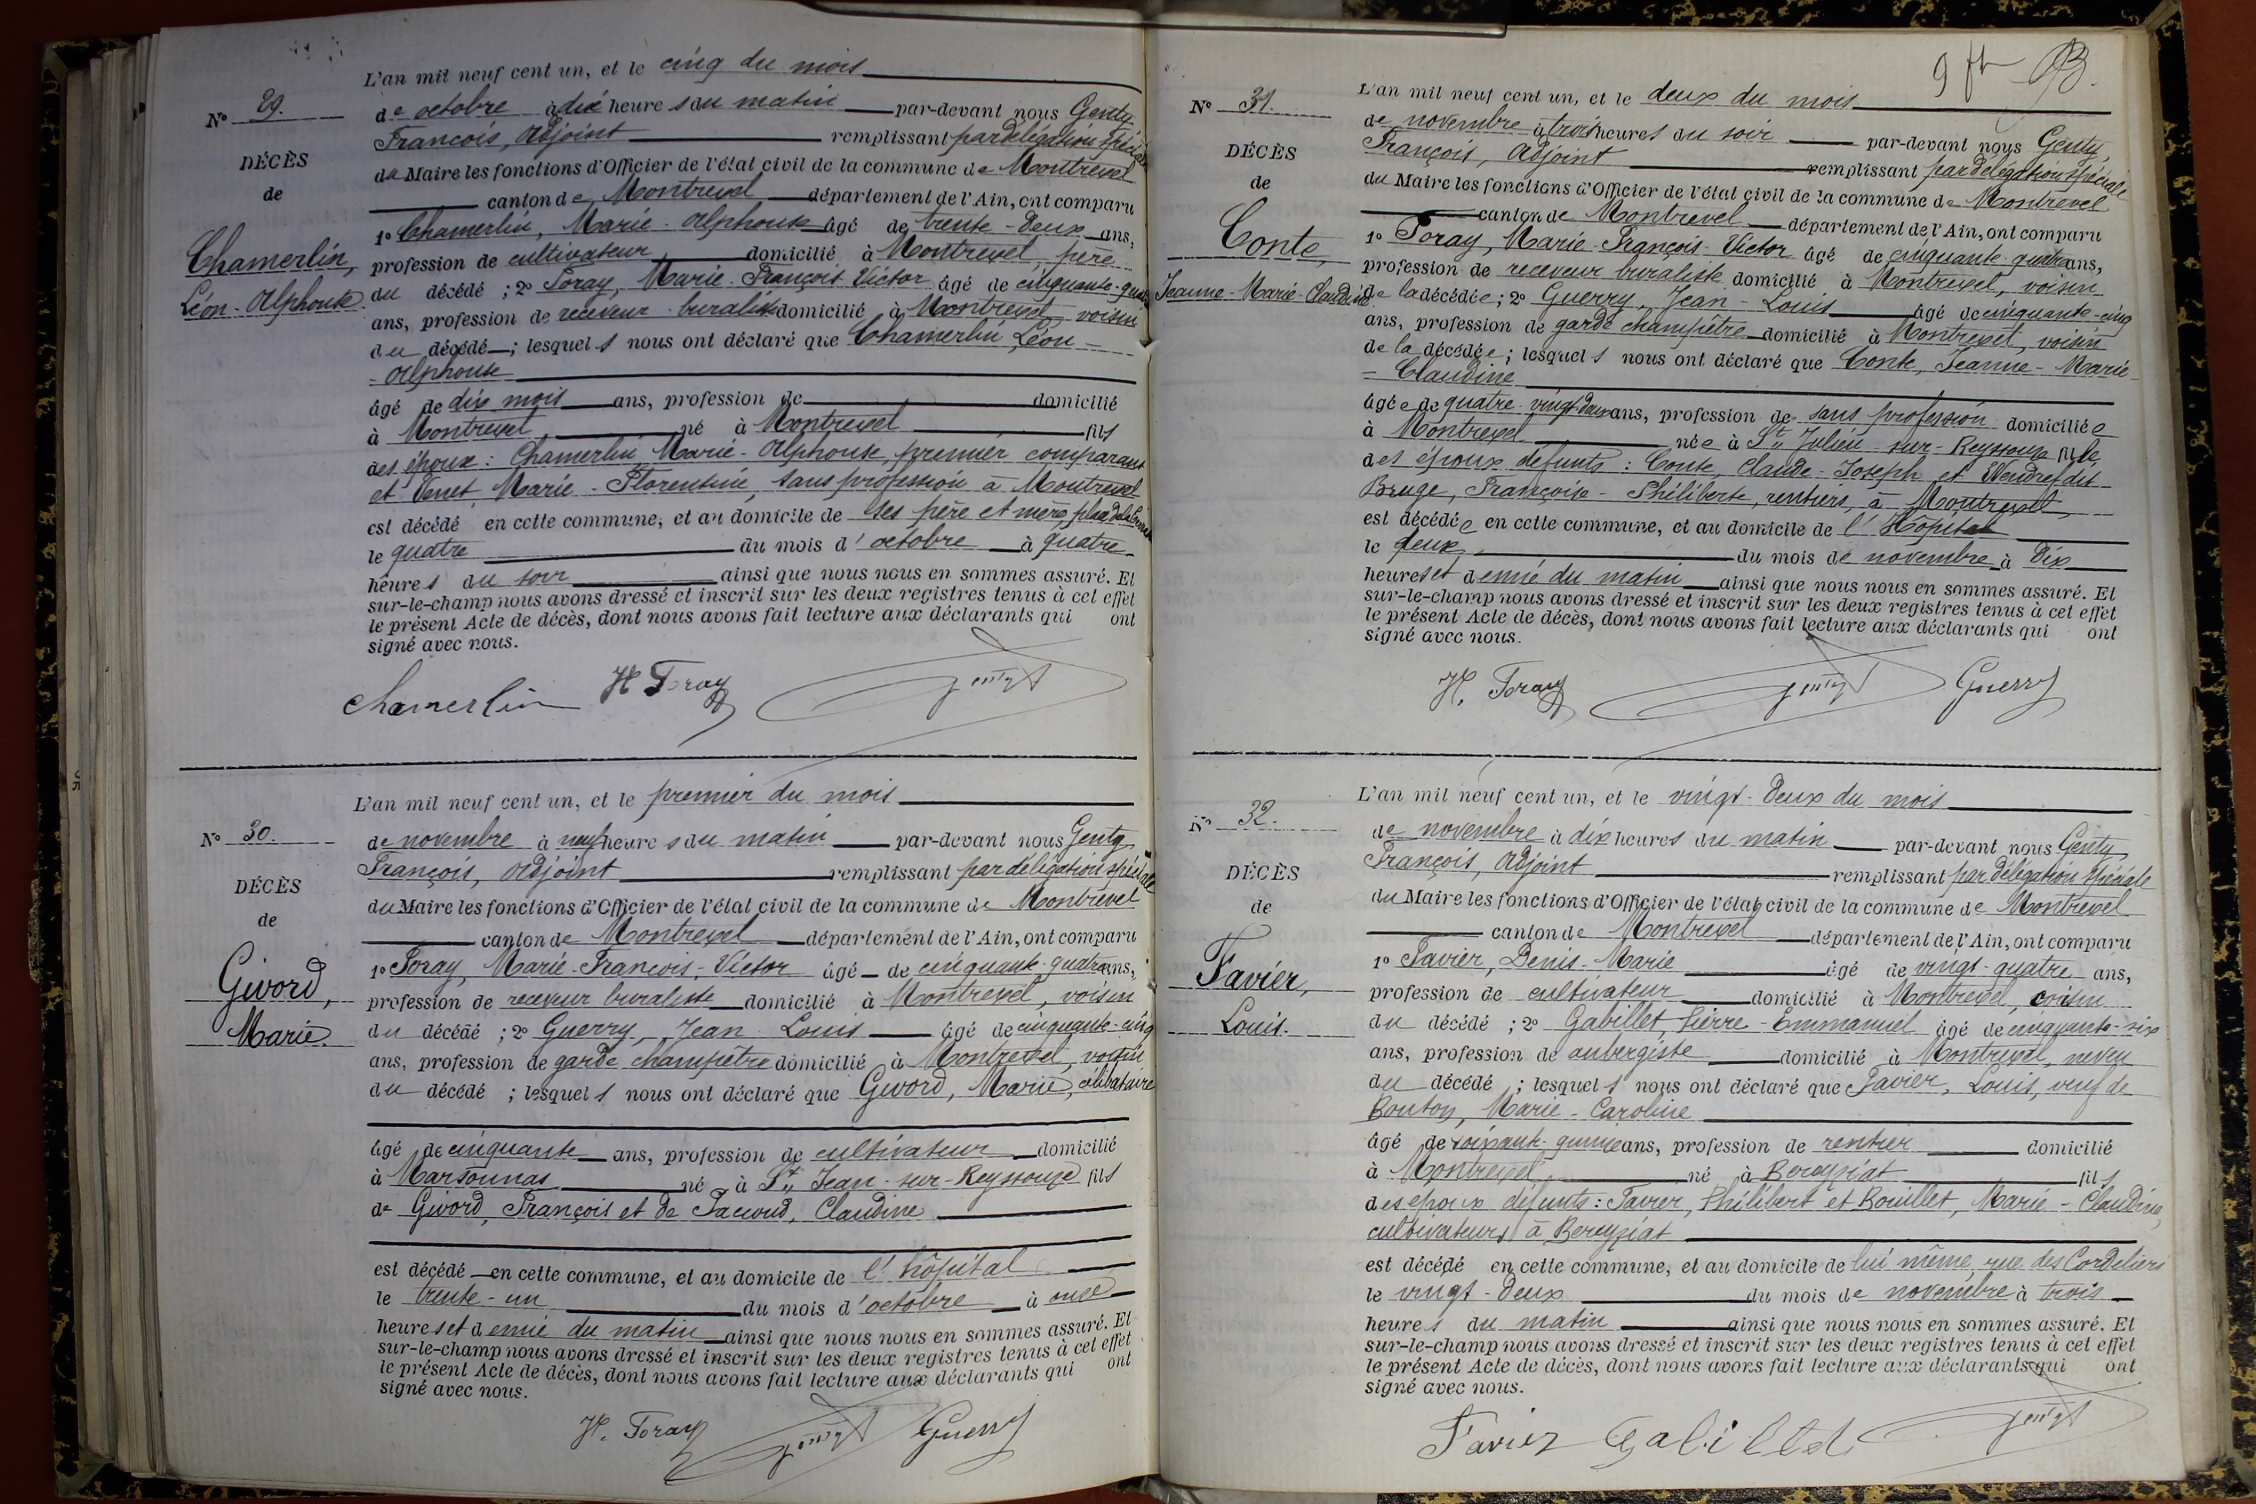 L'an mil neuf cent un, et le cinq du mois
Nº 29.
de octobre à dix heures du matin par-devant nous Genty
François, adjoint remplissant par délégation spéciale
DÉCÈS
du Maire les fonctions d'Officier de l'état civil de la commune de Montrevel
de
canton de Montrevel département de l'Ain, ont comparu
1º Chamerlin, Marie-Alphonse âgé de trente-deux ans,
Chamerlin,
profession de cultivateur domicilié à Montrevel, père
Léon-Alphonse
du décédé ; 2º Foray, Marie-François-Victor âgé de cinquante-quatre
ans, profession de receveur buraliste domicilié à Montrevel, voisin
du décédé ; lesquels nous ont déclaré que Chamerlin Léon-
-Alphonse
âgé de dix mois ans, profession de domicilié
à Montrevel né à Montrevel fils
des époux : Chamerlin Marie-Alphonse, premier comparant
et Venet Marie-Florentine, sans profession à Montrevel
est décédé en cette commune, et au domicile de ses père et mère,
le quatre du mois d'octobre à quatre
heures du soir ainsi que nous nous en sommes assuré. Et
sur-le-champ nous avons dressé et inscrit sur les deux registres tenus à cet effet
le présent Acte de décès, dont nous avons fait lecture aux déclarants qui ont
signé avec nous.
Chamerlin H Foray Genty
L'an mil neuf cent un, et le premier du mois
Nº 30.
de novembre à neuf heures du matin par-devant nous Genty
François, adjoint remplissant par délégation spéciale
DÉCÈS
du Maire les fonctions d'Officier de l'état civil de la commune de Montrevel
de
canton de Montrevel département de l'Ain, ont comparu
Givord,
1º Foray, Marie-François-Victor âgé de cinquante-quatre ans,
profession de receveur buraliste domicilié à Montrevel, voisin
Marie.
du décédé ; 2º Guerry, Jean Louis âgé de cinquante-cinq
ans, profession de garde champêtre domicilié à Montrevel, voisin
du décédé ; lesquels nous ont déclaré que Givord, Marie, célibataire
âgé de cinquante ans, profession de cultivateur domicilié
à Marsonnas né à St Jean-sur-Reyssouze fils
de Givord, François et de Pacoud, Claudine
est décédé en cette commune, et au domicile de l'hôpital
le trente-un du mois d'octobre à onze
heures et demie du matin ainsi que nous nous en sommes assuré. Et
sur-le-champ nous avons dressé et inscrit sur les deux registres tenus à cet effet
le présent Acte de décès, dont nous avons fait lecture aux déclarants qui ont
signé avec nous.
H. Foray Genty Guerry
L'an mil neuf cent un, et le deux du mois
Nº 31.
de novembre à trois heures du soir par-devant nous Genty,
François, adjoint remplissant par délégation spéciale
DÉCÈS
du Maire les fonctions d'Officier de l'état civil de la commune de Montrevel
de
canton de Montrevel département de l'Ain, ont comparu
Conte,
1º Foray, Marie-François-Victor âgé de cinquante-quatre ans,
profession de receveur buraliste domicilié à Montrevel, voisin
Jeanne-Marie-Claudine
de la décédée ; 2º Guerry, Jean-Louis âgé de cinquante-cinq
ans, profession de garde champêtre domicilié à Montrevel, voisin
de la décédée ; lesquels nous ont déclaré que Conte, Jeanne-Marie-
-Claudine
âgée de quatre-vingt-deux ans, profession de sans profession domiciliée
à Montrevel née à St Julien-sur-Reyssouze fille
des époux défunts : Conte, Claude-Joseph et dit
Bruge, Françoise-Philiberte, rentiers, à Montrevel
est décédée en cette commune, et au domicile de l'Hôpital
le deux du mois de novembre à dix
heures et demie du matin ainsi que nous nous en sommes assuré. Et
sur-le-champ nous avons dressé et inscrit sur les deux registres tenus à cet effet
le présent Acte de décès, dont nous avons fait lecture aux déclarants qui ont
signé avec nous.
H. Foray Genty Guerry
L'an mil neuf cent un, et le vingt-deux du mois
Nº 32.
de novembre à dix heures du matin par-devant nous Genty,
François, adjoint remplissant par délégation spéciale
DÉCÈS
du Maire les fonctions d'Officier de l'état civil de la commune de Montrevel
de
canton de Montrevel département de l'Ain, ont comparu
Favier,
1º Favier, Denis-Marie âgé de vingt-quatre ans,
profession de cultivateur domicilié à Montrevel, voisin
Louis.
du décédé ; 2º Gabillet, Pierre-Emmanuel âgé de cinquante-six
ans, profession de aubergiste domicilié à Montrevel, neveu
du décédé ; lesquels nous ont déclaré que Favier, Louis, veuf de
Bouton, Marie-Caroline
âgé de soixante-quinze ans, profession de rentier domicilié
à Montrevel né à Béréyziat fils
des époux défunts : Favier, Philibert et Bouillet, Marie-Claudine,
cultivateurs à Béreyziat
est décédé en cette commune, et au domicile de lui même, rue des Cordeliers
le vingt-deux du mois de novembre à trois
heures du matin ainsi que nous nous en sommes assuré. Et
sur-le-champ nous avons dressé et inscrit sur les deux registres tenus à cet effet
le présent Acte de décès, dont nous avons fait lecture aux déclarants qui ont
signé avec nous.
Favier Gabillet Genty